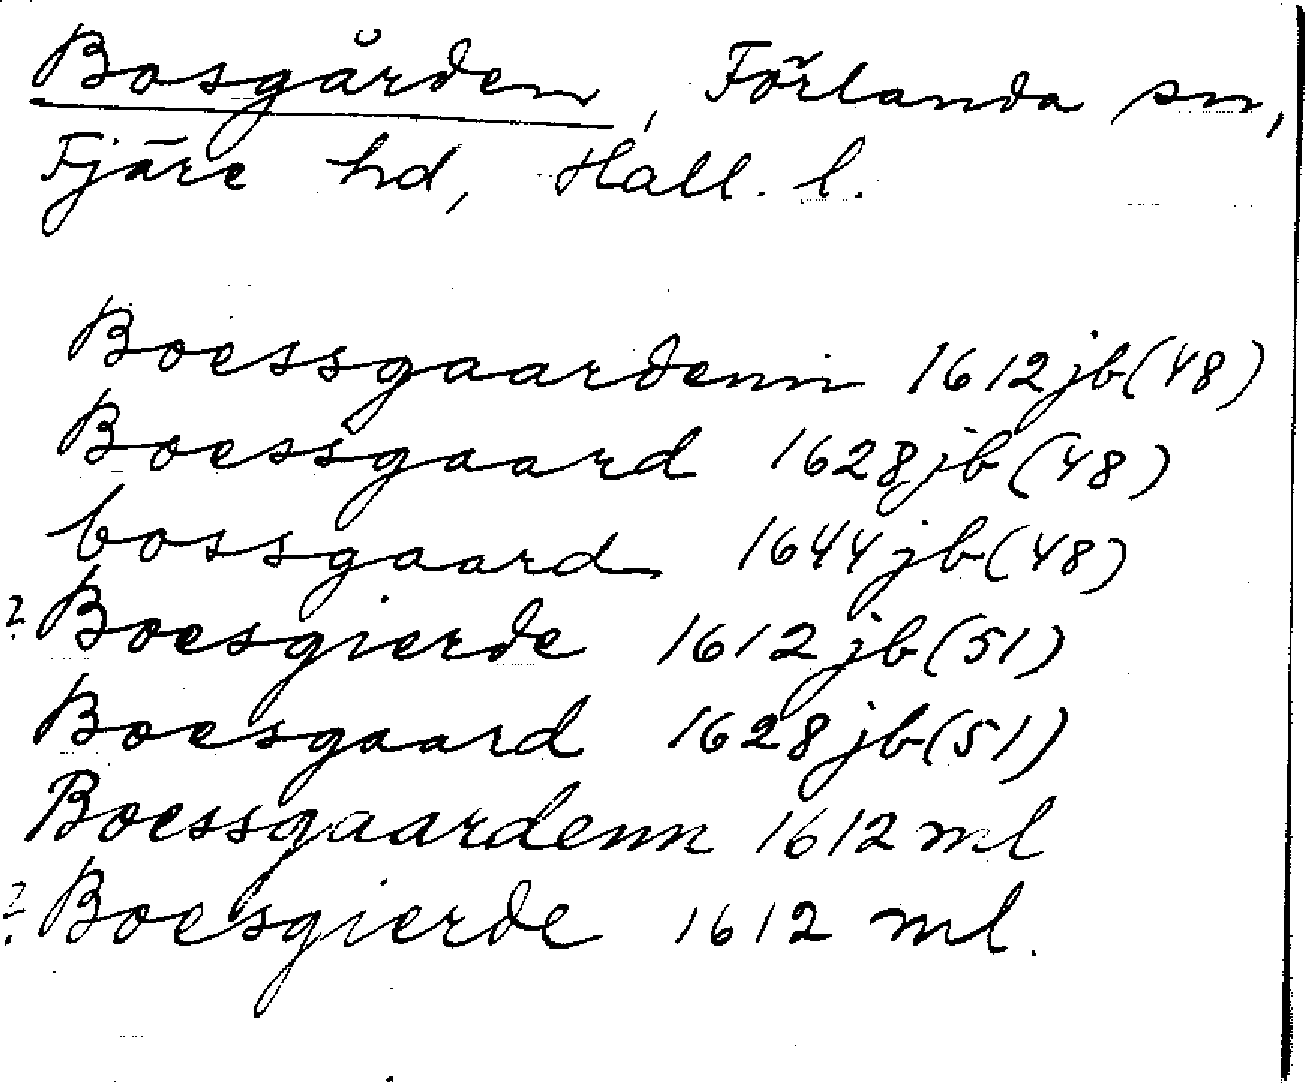 Bosgården, Förlanda sn,
Fjäre hd, Hall. l.
Boessgaardenn 1612 jb (48)
Boessgaard 1628 jb (48)
bossgaard 1644 jb (48)
? Boesgierde 1612 jb (51)
Boesgaard 1628 jb (51)
Boessgaardenn 1612 ml
? Boesgierde 1612 ml.